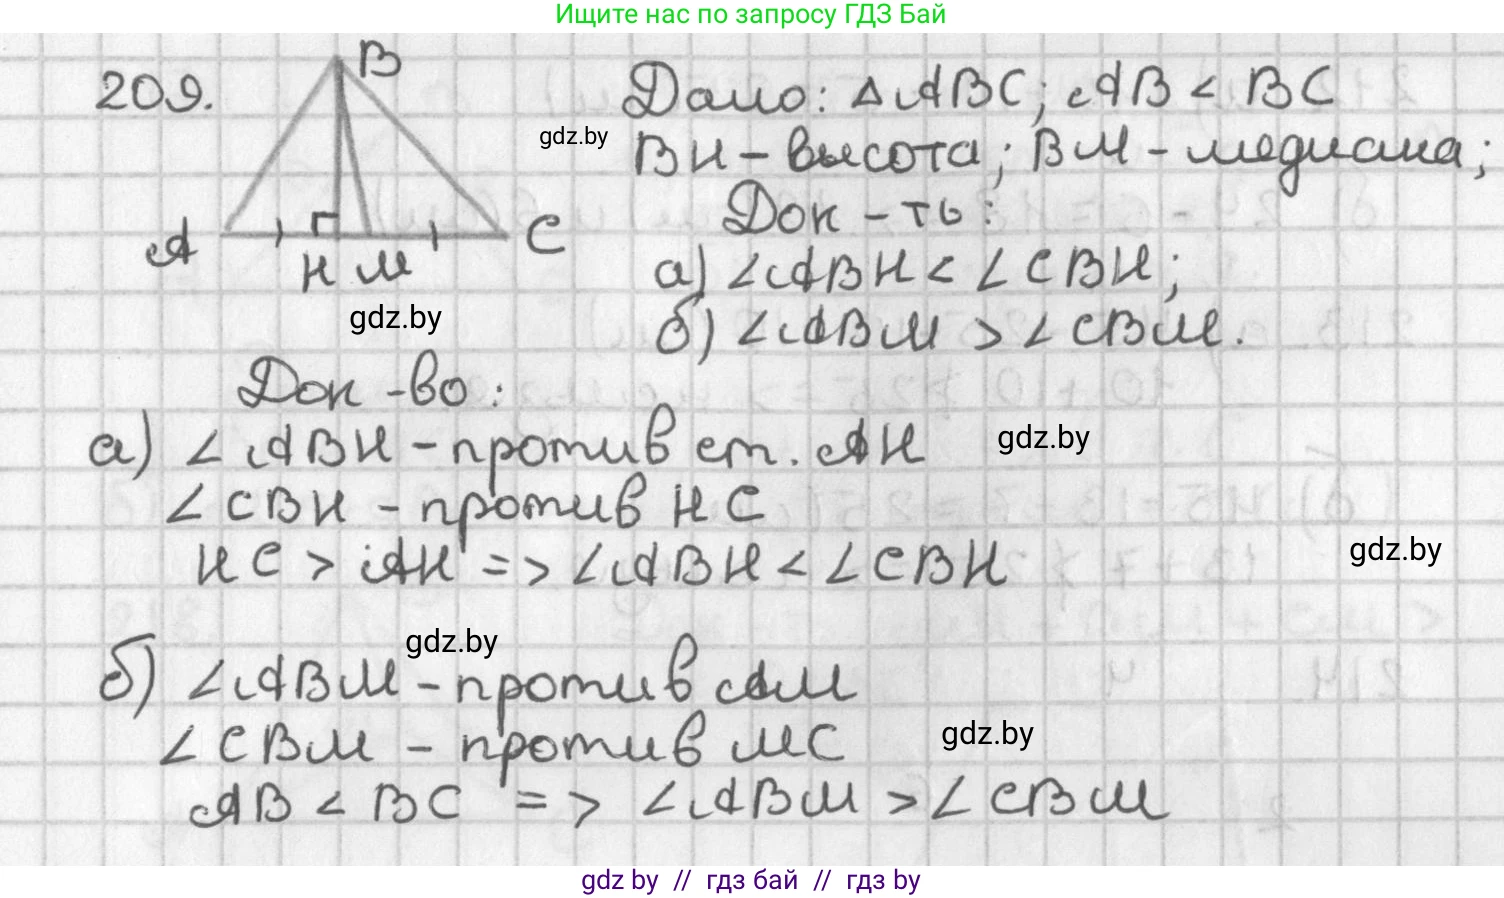 Ищите нас по запросу ГДЗ Бай
209.
B
A
H M
C
Дано: △ABC; AB < BC
gdz.by
BH - высота; BM - медиана;
Док-ть:
а) ∠ABH < ∠CBH;
gdz.by
б) ∠ABM > ∠CBM.
Док-во:
а) ∠ABH - против ст. AH
gdz.by
∠CBH - против HC
HC > AH => ∠ABH < ∠CBH
gdz.by
gdz.by
б) ∠ABM - против AM
∠CBM - против MC
gdz.by
AB < BC => ∠ABM > ∠CBM
gdz by // гдз бай // гдз by